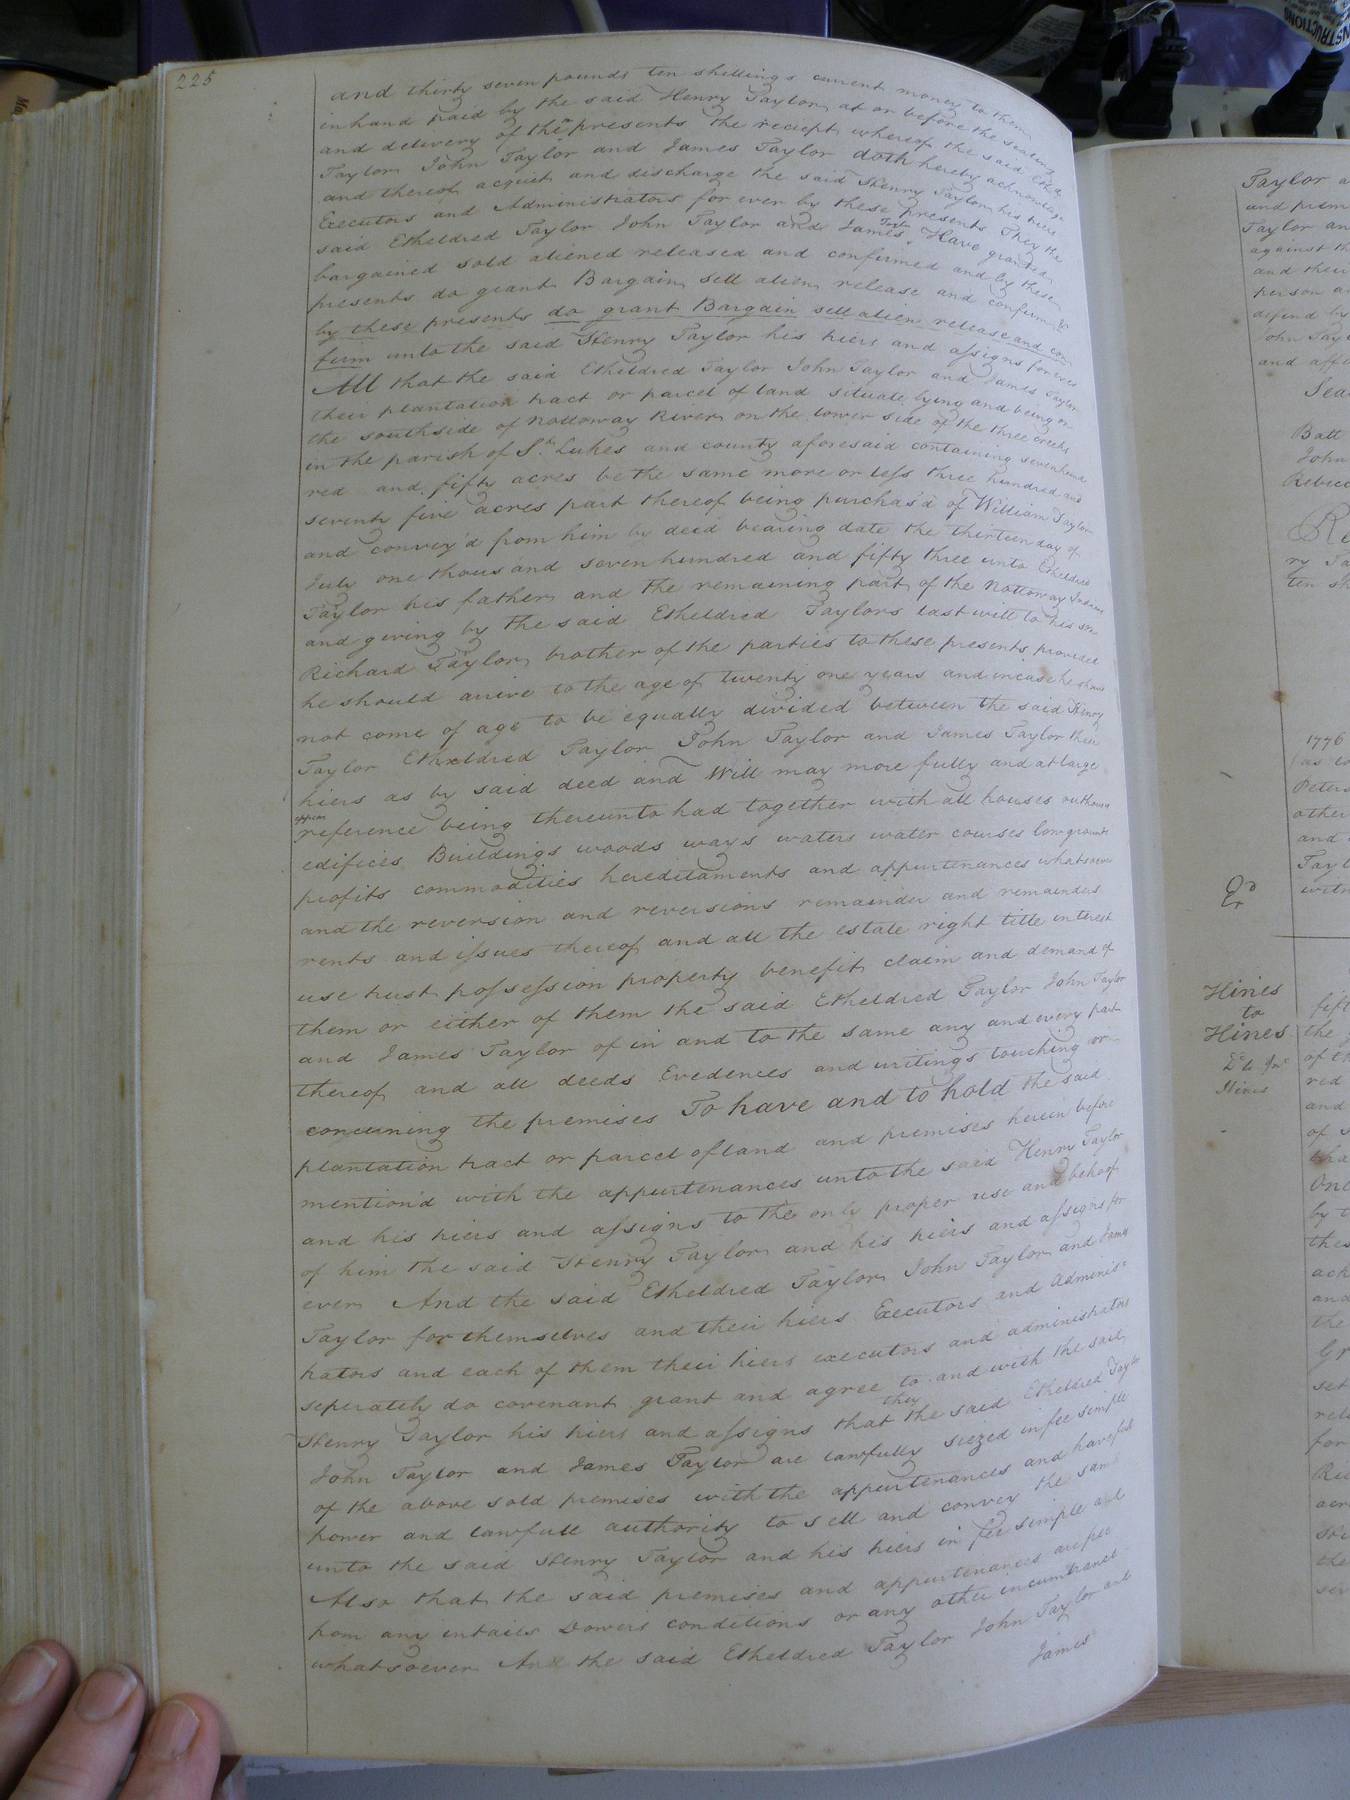 225
and thirty seven pounds ten shillings current money to them
in hand paid by the said Henry Taylor, at or before the sealing
and delivery of these presents the reciept whereof the said Ethd.
Taylor John Taylor and James Taylor doth hereby acknowledge
and thereof acquit and discharge the said Henry Taylor, his hiers
Executors and Administrators for ever by these presents They the
said Etheldred Taylor John Taylor and James Taylor Have granted
bargained sold aliened released and confirmed and by these
presents do grant Bargain, sell alien, release and confirm &
by these presents do grant Bargain sell alien release and con
firm unto the said Henry Taylor his hiers and assigns for ever
All that the said Etheldred Taylor John Taylor and James Taylor
their plantation tract or parcel of land situate, lying and being on
the southside of Nottoway River on the lower side of the three creeks
in the parish of St. Lukes and county aforesaid containing sevenhund
red and fifty acres be the same more or less three hundred and
seventy five acres part thereof being purchas'd of William Taylor
and convey'd from him by deed bearing date the thirteen day of
July one thousand seven hundred and fifty three unto Etheldred
Taylor his father and the remaining part of the Nottoway Indians
and giving by the said Etheldred Taylors last will to his son
Richard Taylor, brother of the parties to these presents, provided
he should arrive to the age of twenty one years and incase he shou
not come of age to be equally divided between the said Henry
Taylor Etheldred Taylor John Taylor and James Taylor their
hiers as by said deed and Will may more fully and at large
appear
reference being thereunto had together with all houses outhouses
edifices Buildings woods ways waters water courses low grounds
profits commodities hereditaments and appurtenances whatsoever
and the reversion and reversions remainder and remainders
rents and issues thereof and all the estate right title interest
use trust possession property benefit claim and demand of
them or either of them the said Etheldred Taylor John Taylor
and James Taylor of in and to the same any and every part
thereof and all deeds Evedences and writings touching or
concerning the premises To have and to hold the said
plantation tract or parcel of land and premises herein before
mention'd with the appurtenances unto the said Henry Taylor
and his hiers and assigns to the only proper use and behoof
of him the said Henry Taylor and his hiers and assigns for
ever And the said Etheldred Taylor, John Taylor, and James
Taylor for themselves and their hiers Executors and Adminis=
trators and each of them their hiers executors and administrators
seperately do covenant grant and agree to and with the said
Henry Taylor his hiers and assigns that they the said Etheldred Taylor
John Taylor and James Taylor are lawfully siezed in fee simple
of the above sold premises with the appurtenances and have full
power and lawfull authority to sell and convey the same
unto the said Henry Taylor and his hiers in fee simple and
Also that the said premises and appurtenances are free
from any entails Dowers conditions or any other incumbrance
whatsoever And the said Etheldred Taylor John Taylor and
James
Taylor a
and prem
Taylor an
against th
and their
person a
defend by
John Tayl
and aff
Sea
Batt
John
Rebec
Re
ry Ta
ten sh
1776
Peters
other
and
Tayl
witn
Hines
to
Hines
Hines
fift
the
of th
red
and
of
tha
One
by t
thes
ack
and
the
Gr
set
rel
for
Ric
acr
the